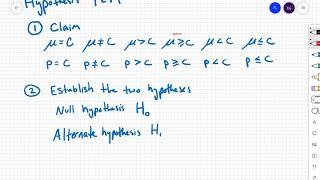 Hypothesis Test
① Claim
μ = C μ ≠ C μ > C μ ≥ C μ < C μ ≤ C
p = C p ≠ C p > C p ≥ C p < C p ≤ C
② Establish the two hypotheses
Null hypothesis H₀
Alternate hypothesis H₁